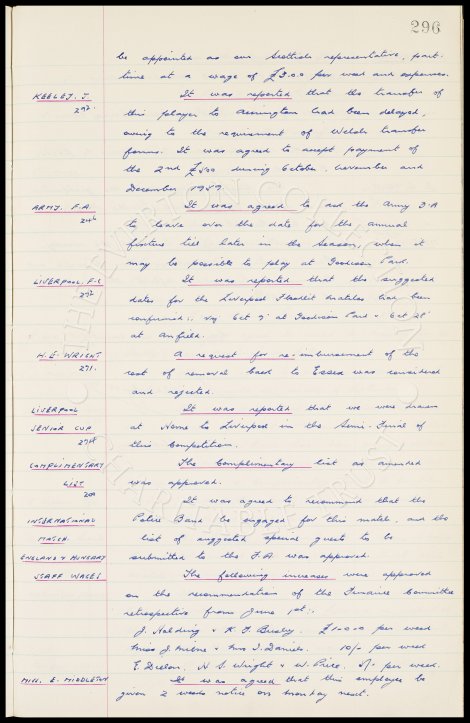 296
be appointed as our Scottish representative, part-
time at a wage of £3.0.0 per week and expenses.
KEELEY. J
292.
It was reported that the transfer of
this player to Accrington had been delayed,
owing to the requirement of Welsh transfer
forms. It was agreed to accept payment of
the 2nd during October, November and
December 1959.
ARMY. F.A.
246
It was agreed to ask the Army F.A
to leave over the date for the annual
fixture till later in the season, when it
may be possible to play at Goodison Park.
LIVERPOOL. F.C
292
It was reported that the suggested
dates for the Liverpool Floodlit matches had been
confirmed:. viz Oct at Goodison Park & Oct
at Anfield.
H. E. WRIGHT
271.
A request for re-imbursement of the
cost of removal back to Essex was considered
and rejected.
LIVERPOOL
SENIOR CUP
274
It was reported that we were drawn
at Home to Liverpool in the Semi-Final of
this Competition.
COMPLIMENTARY
LIST
200
The Complimentary list as amended
was approved.
INTERNATIONAL
MATCH.
ENGLAND v HUNGARY
It was agreed to recommend that the
Police Band be engaged for this match, and the
list of suggested special guests to be
submitted to the F.A was approved.
STAFF WAGES
The following increases were approved
on the recommendation of the Finance Committee
retrospective from June 1st:.
J. & K. F. £1-0-0 per week
Miss J. Milne & Mrs J. Daniels. 10/- per week
E. N. S. Wright & W. Price. 5/- per week.
MISS. E. MIDDLETON
It was agreed that this employee be
given 2 weeks notice on Monday next.
THE EVERTON COLLECTION
CHARITABLE TRUST